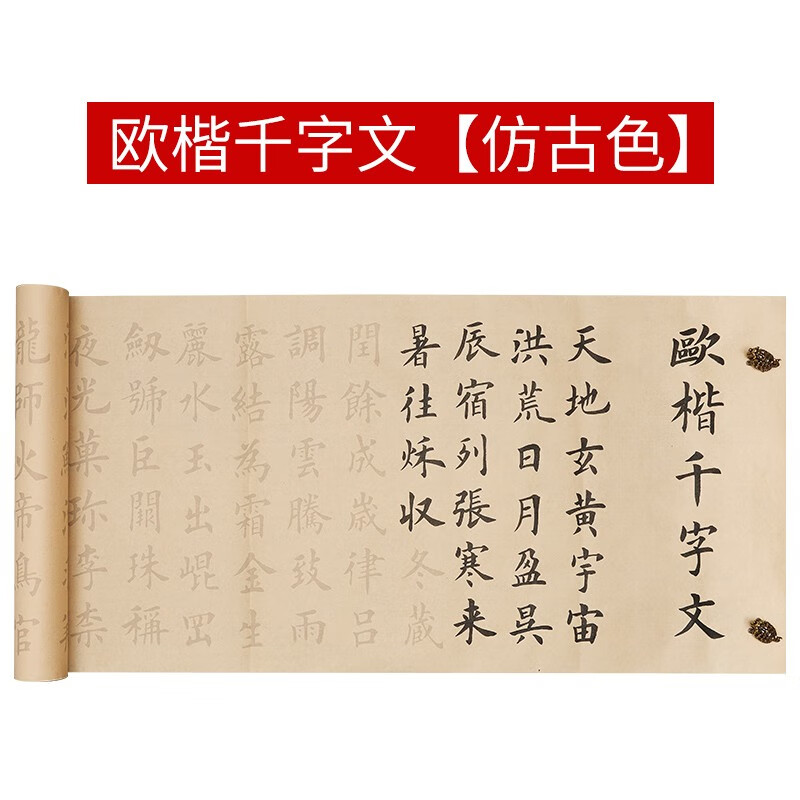 欧楷千字文【仿古色】
歐楷千字文
天地玄黄宇宙
洪荒日月盈昃
辰宿列張寒来
暑往秌収冬蔵
閏餘成歳律吕
調陽雲騰致雨
露結為霜金生
麗水玉出崐岡
劔號巨闕珠稱
夜光菓珎李柰
龍師火帝鳥官